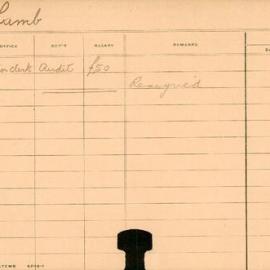 Lamb
OFFICE DEP'T SALARY REMARKS
clerk Audit £50
Resign'd